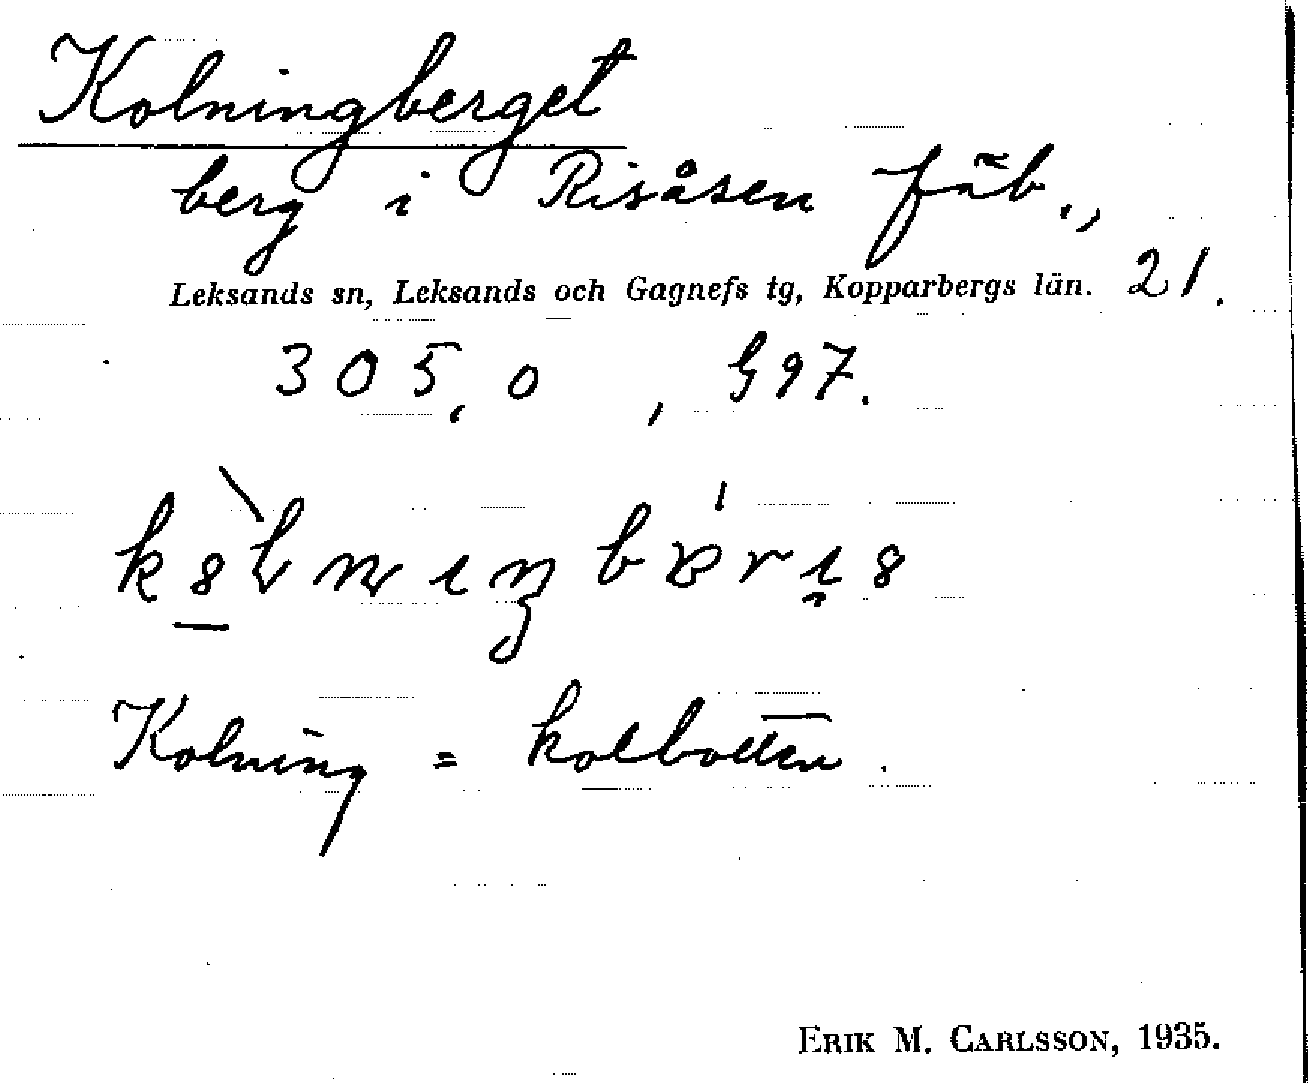 Kolningberget
berg i Risåsen fäb.,
Leksands sn, Leksands och Gagnefs tg, Kopparbergs län. 21.
305,0 , G97.
Kolning = kolbotten.
ERIK M. CARLSSON, 1935.